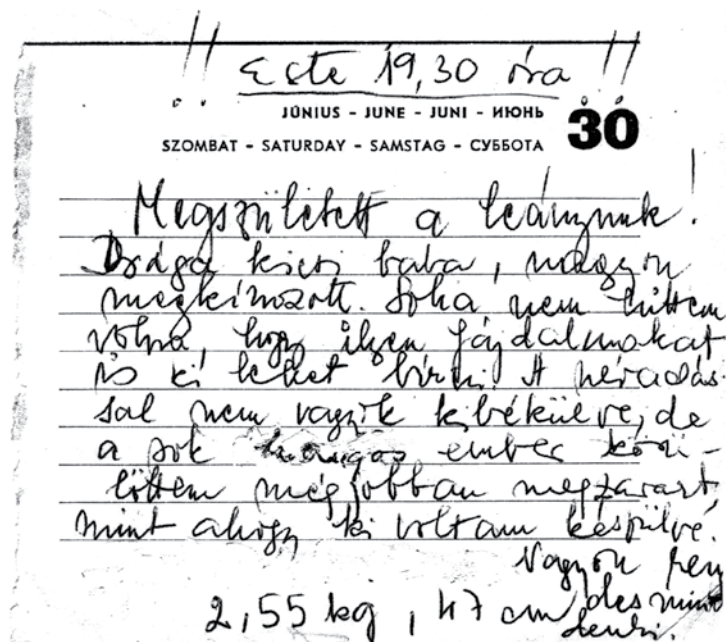 !! Este 19,30 óra !!
JÚNIUS - JUNE - JUNI - ИЮНЬ
SZOMBAT - SATURDAY - SAMSTAG - СУББОТА 30
Megszületett a leányunk!
Drága kicsi baba, nagyon
megkínzott. Soha nem hittem
volna, hogy ilyen fájdalmakat
is ki lehet bírni. A névadás
sal nem vagyok kibékülve, de
a sok hangos ember körü-
löttem még jobban megzavart,
mint ahogy ki voltam készülve.
Nagyon ren
des mint
2,55 kg, 47 cm